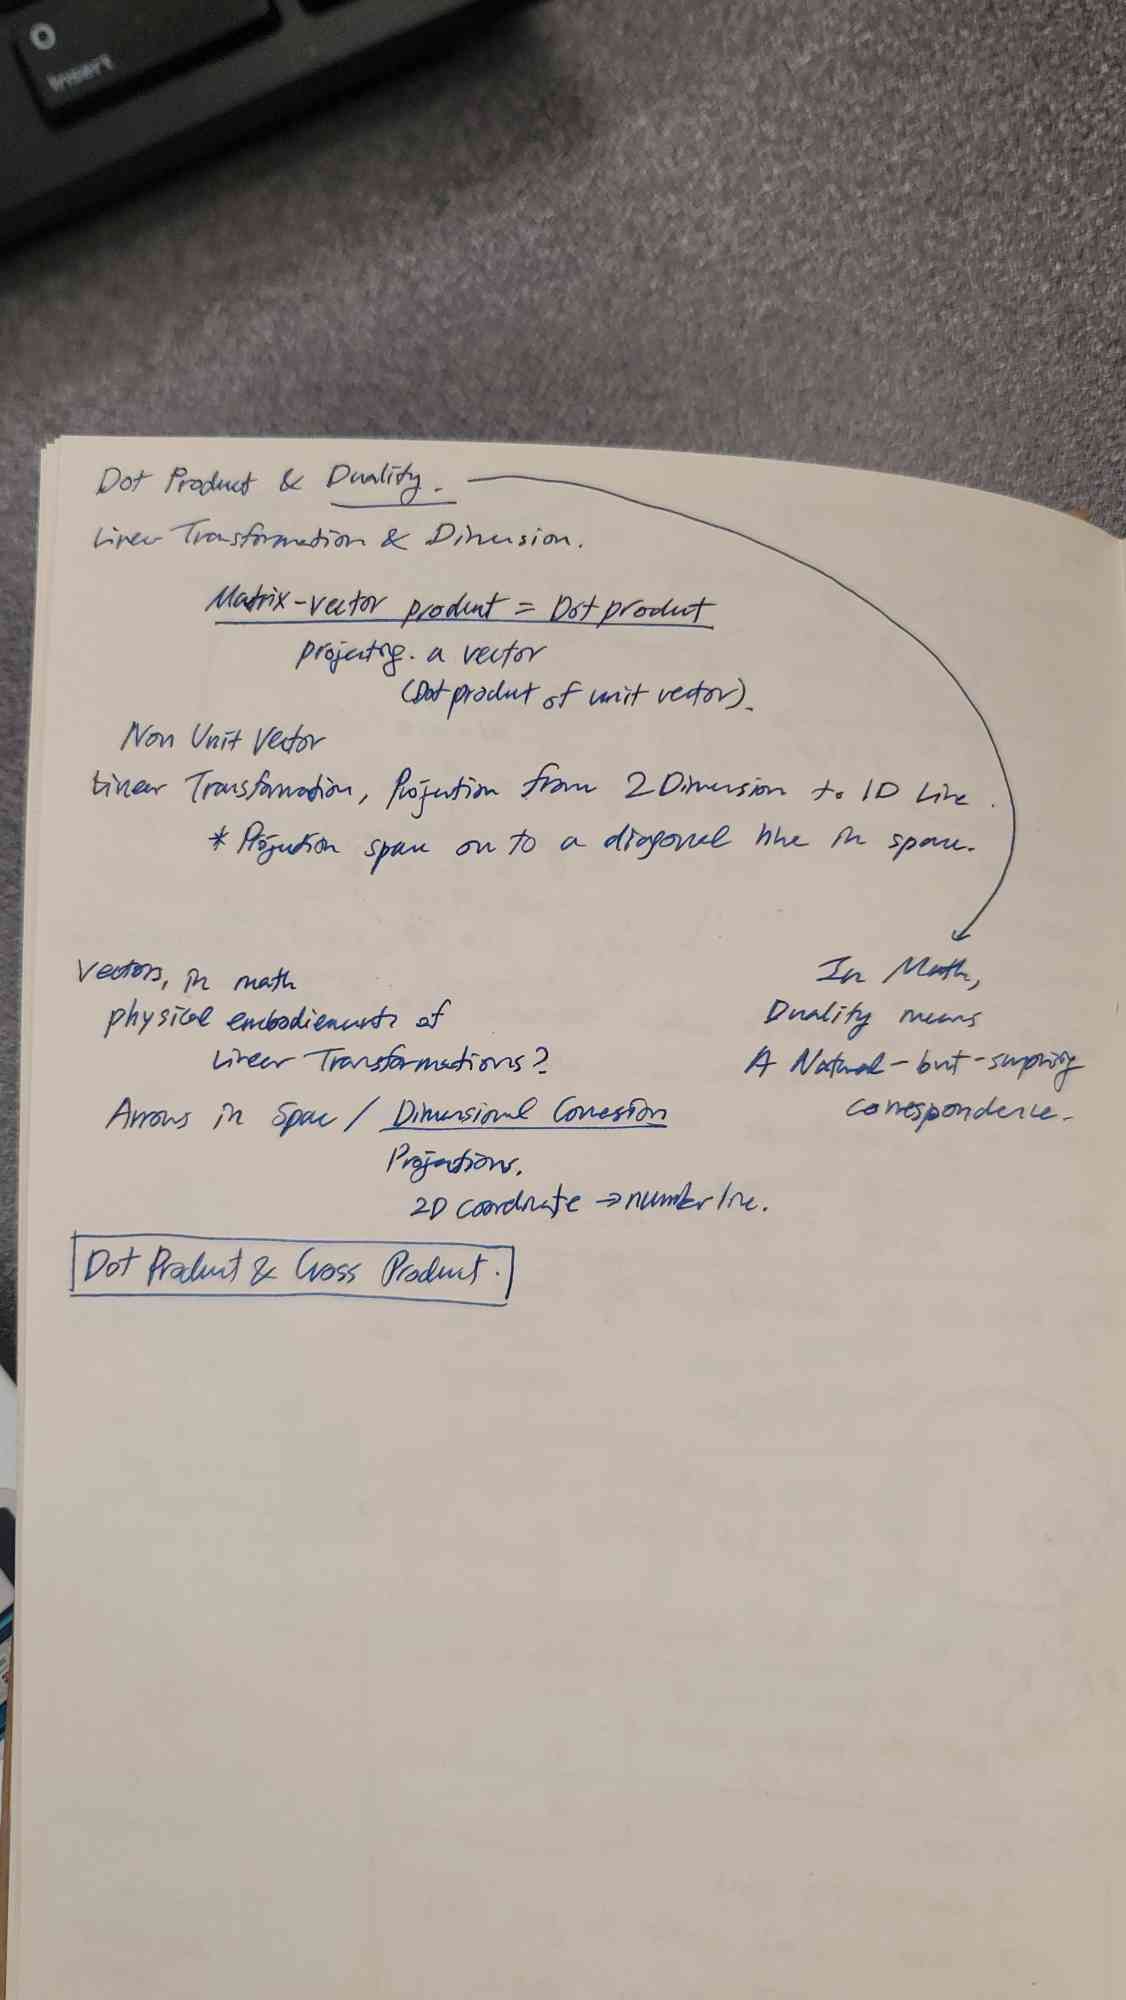 0
Insert
Dot Product & Duality.
Linear Transformation & Dimension.
Matrix-vector product = Dot product
Projecting. a vector
(Dot product of unit vector).
Non Unit Vector
Linear Transformation, Projection from 2 Dimension to 1D Line.
* Projection space on to a diagonal line in space.
Vectors, in math
physical embodiements of
Linear Transformations?
Arrows in Space / Dimensional Conversion
Projections.
2D coordinate → number line.
In Math,
Duality means
A Natural-but-surprising
correspondence.
Dot Product & Cross Product.